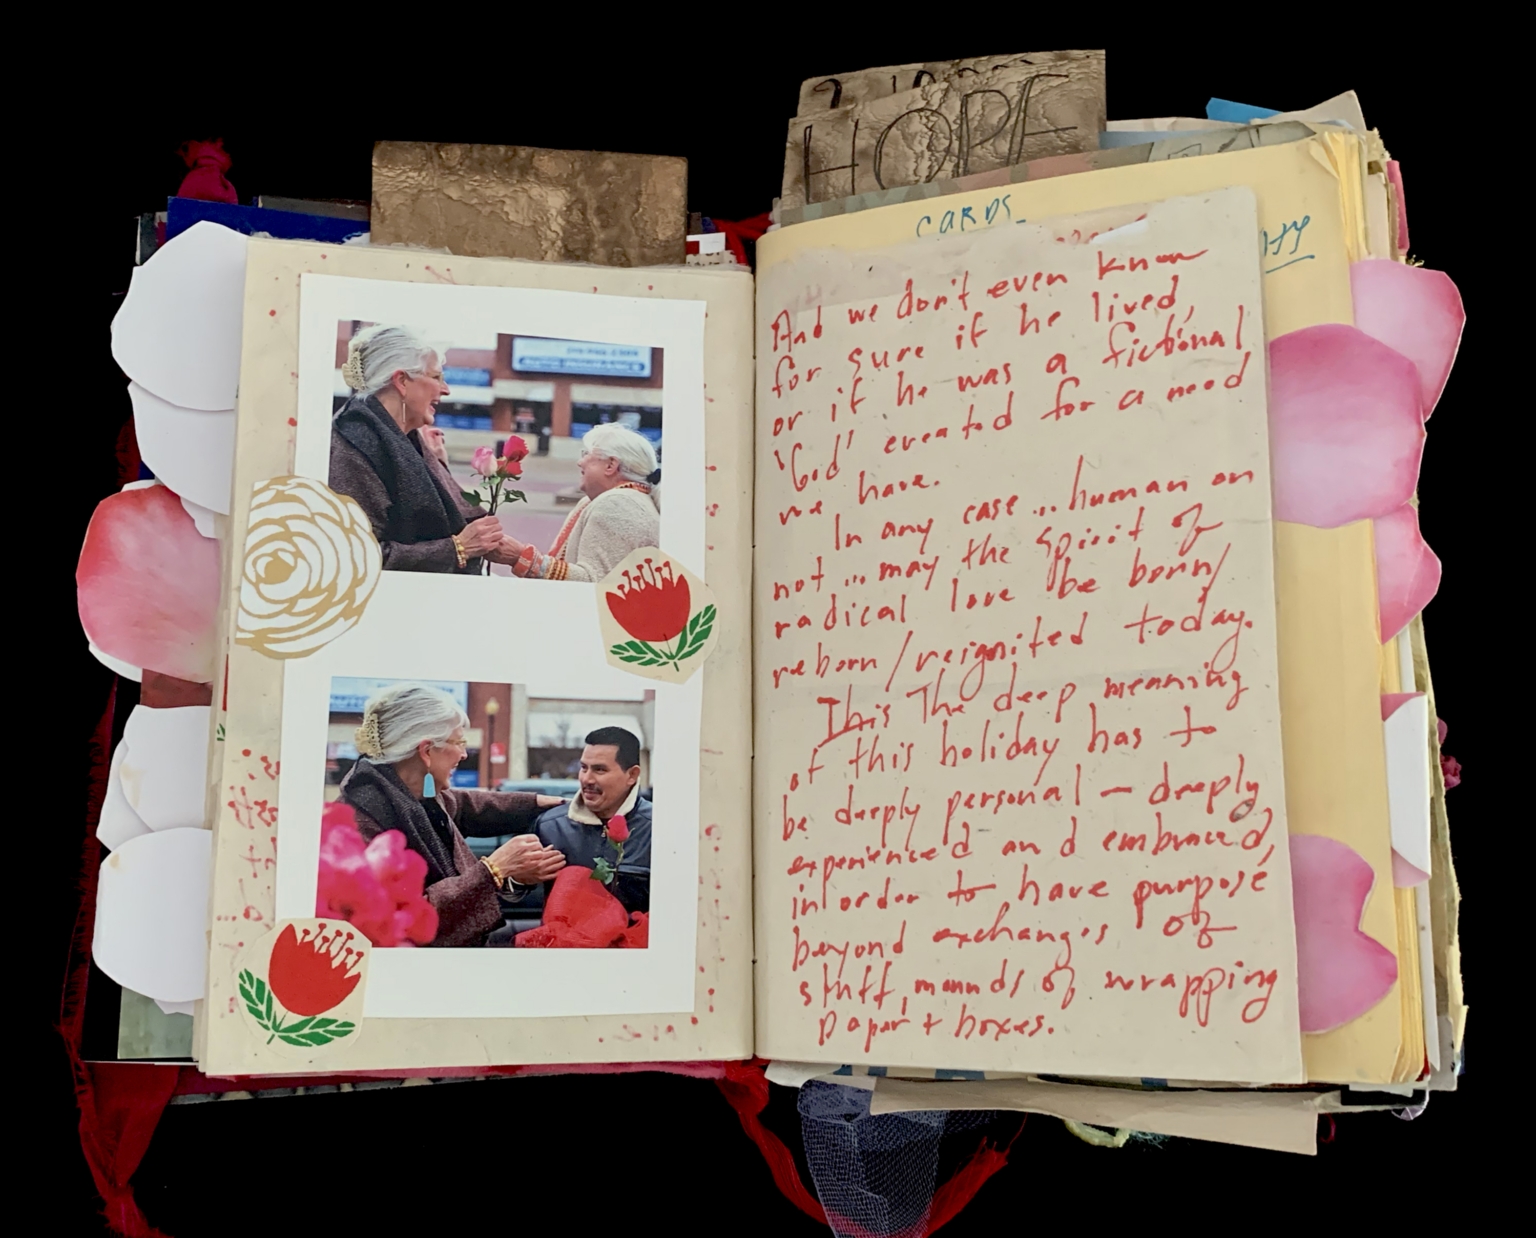 HOPE
CARDS
And we don't even know
for sure if he lived,
or if he was a fictional
'God' created for a need
we have.
In any case ... human or
not ... may the spirit of
radical love be born/
reborn/reignited today.
This The deep meaning
of this holiday has to
be deeply personal — deeply
experienced and embraced,
in order to have purpose
beyond exchanges of
stuff, mounds of wrapping
paper + boxes.